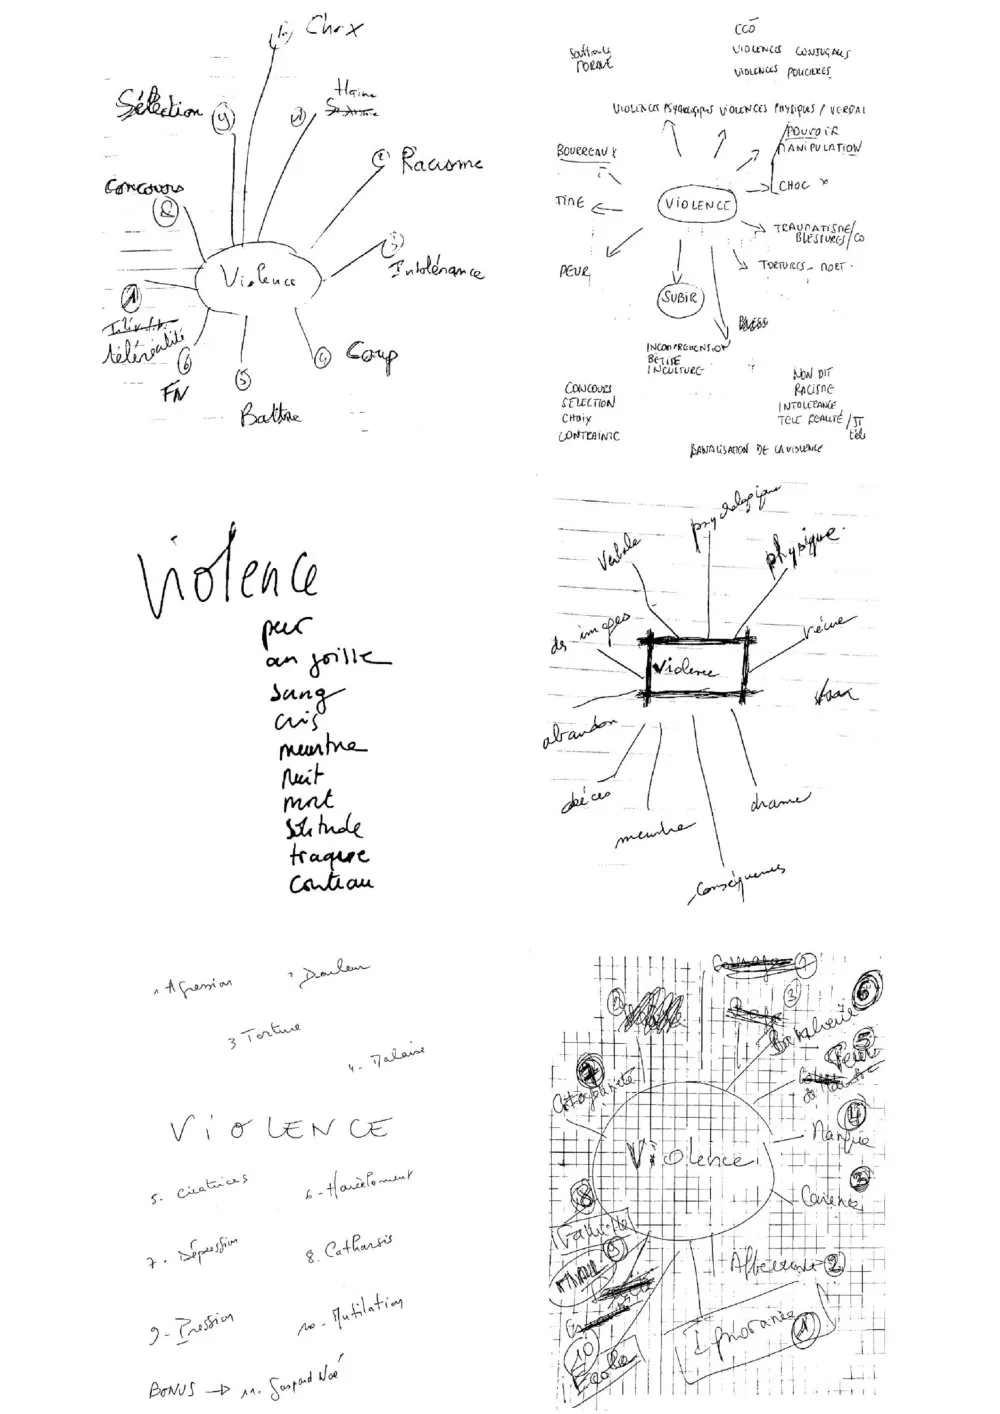 Choix
Haine
Sélection 9
Racisme
Concours
8
3
Intolérance
Violence
1
téléréalité
6
FN
5
Battre
4
Coup
CCO
VIOLENCES CONJUGALES
VIOLENCES POLICIERES
MORALE
VIOLENCES PSYCHOLOGIQUES VIOLENCES PHYSIQUES / VERBAL
POUVOIR
MANIPULATION
BOURREAUX
CHOC
VIOLENCE
TRAUMATISME/
BLESSURES/CO
PEUR
TORTURES - MORT
SUBIR
INCOMPREHENSION
BETISE
INCULTURE
CONCOURS
SELECTION
CHOIX
CONTRAINTE
NON DIT
RACISME
INTOLERANCE
TELE REALITE / JT
télé
BANALISATION DE LA VIOLENCE
Violence
peur
angoisse
sang
cris
meurtre
nuit
mort
Solitude
traque
Couteau
psychologique
verbale
physique
ds images
vécue
Violence
abandon
décès
drame
meurtre
conséquences
1 Agression
2 Douleur
3 Torture
4 - Malaise
VIOLENCE
5. Cicatrices
6 - Harcèlement
7. Dépression
8. Catharsis
9 - Pression
10 - Mutilation
BONUS → 11. Gaspard Noé
3
6
5
Peur
4
Manque
Violence
Carence
8
Famille
9
2
Ignorance 1
10
Ecole